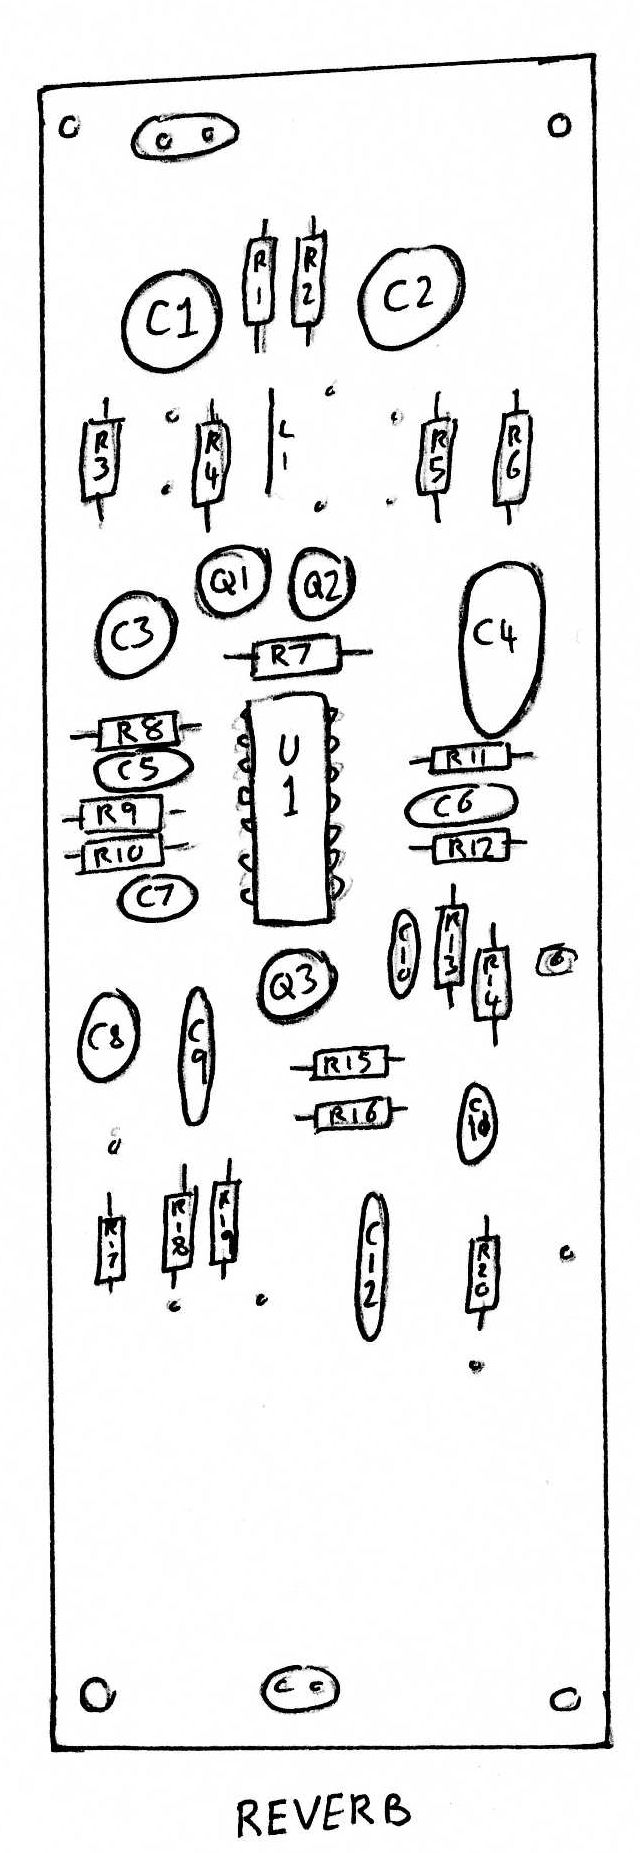 R1
R2
C1
C2
R3
R4
L1
R5
R6
Q1
Q2
C3
C4
R7
R8
U1
C5
R11
R9
C6
R10
R12
C7
C10
R13
R14
Q3
C8
C9
R15
R16
R17
R18
R19
C12
R20
REVERB